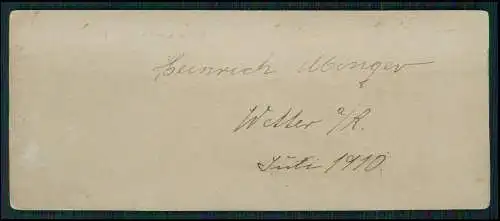 Heinrich
Wetter a/R.
Juli 1910.